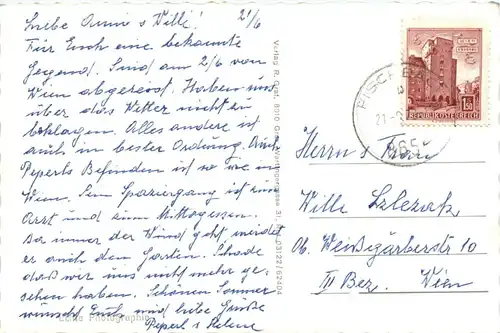 21/6
Liebe Anni u Willi!
Für Euch eine bekannte
Gegend. Sind am 2/6 von
Wien abgereist. Haben uns
über das Wetter nicht zu
beklagen. Alles andere ist
auch in bester Ordnung. Auch
Peperls Befinden ist so wie in
Wien. Sein Spaziergang ist zum
Arzt und zum Mittagessen.
Da immer der Wind geht meidet
er auch den Garten. Schade
daß wir uns nicht mehr ge-
sehen haben. Schönen Sommer
wünscht Euch und liebe Grüße
Peperl u Helene
Echte Photographie
Verlag R. 8010 Graz,
03122/62404
FISCHBA
21.
1.50
REPUBLIK ÖSTERREICH
Herrn u Frau
Willi Szlezak
Ob. Weißgärberstr 10
III Bez. Wien